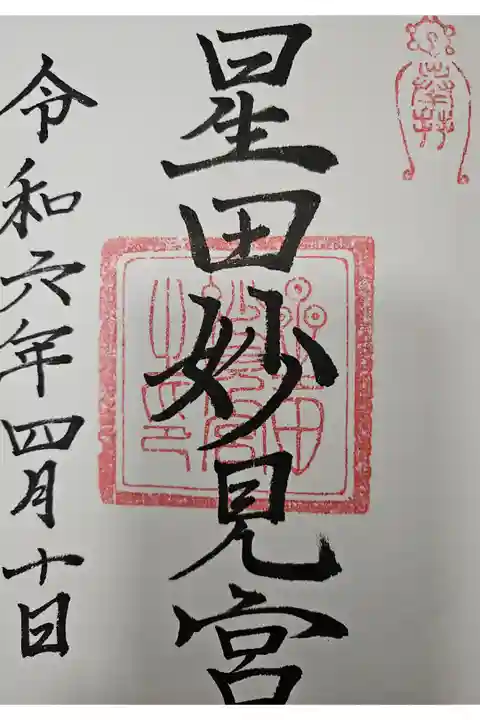 奉拝
星田妙見宮
令和六年四月十日